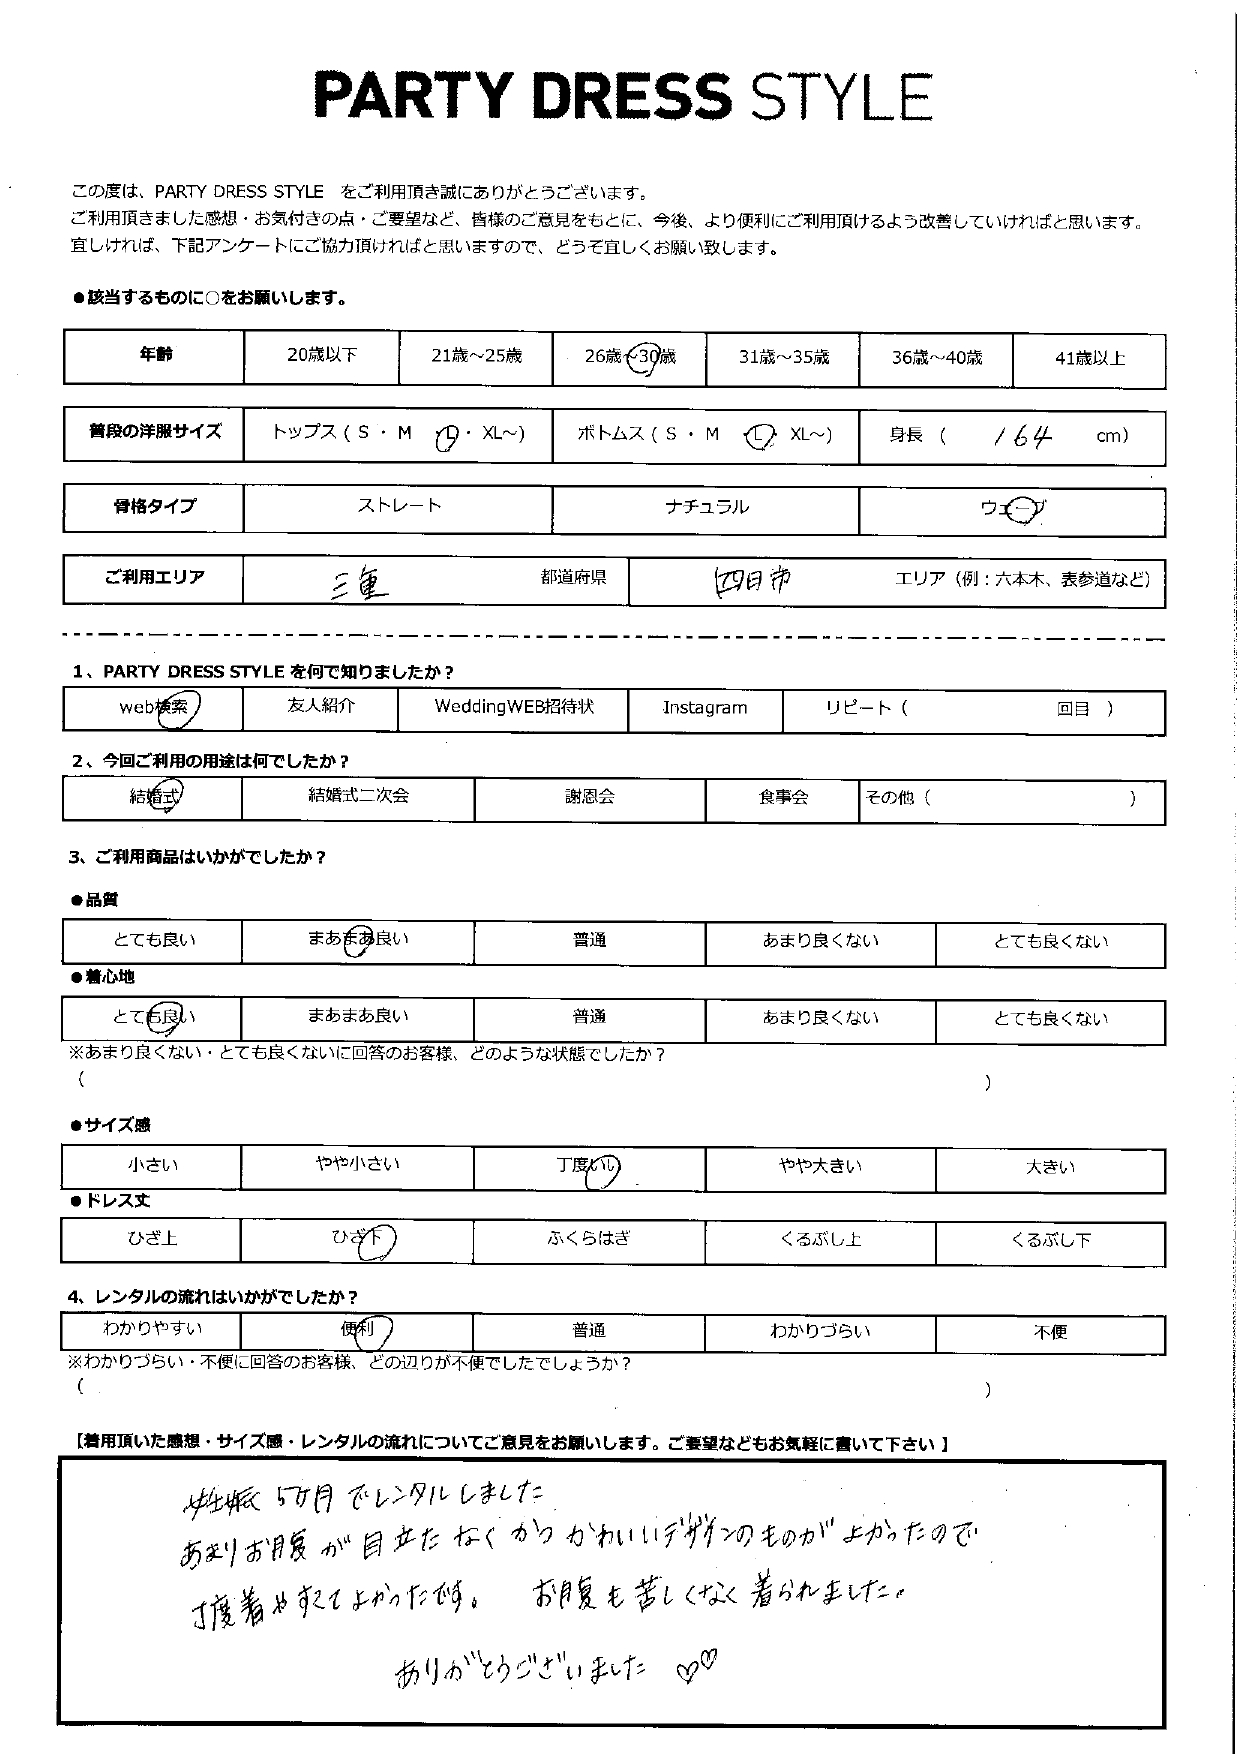 PARTY DRESS STYLE
この度は、PARTY DRESS STYLE をご利用頂き誠にありがとうございます。
ご利用頂きました感想・お気付きの点・ご要望など、皆様のご意見をもとに、今後、より便利にご利用頂けるよう改善していければと思います。
宜しければ、下記アンケートにご協力頂ければと思いますので、どうぞ宜しくお願い致します。
●該当するものに○をお願いします。
年齢 20歳以下 21歳～25歳 26歳～30歳 31歳～35歳 36歳～40歳 41歳以上
普段の洋服サイズ トップス ( S ・ M L ・ XL～) ボトムス ( S ・ M L ・ XL～) 身長 ( 164 cm)
骨格タイプ ストレート ナチュラル ウェーブ
ご利用エリア 三重 都道府県 四日市 エリア（例：六本木、表参道など）
1、PARTY DRESS STYLE を何で知りましたか？
web検索 友人紹介 WeddingWEB招待状 Instagram リピート ( 回目 )
2、今回ご利用の用途は何でしたか？
結婚式 結婚式二次会 謝恩会 食事会 その他 ( )
3、ご利用商品はいかがでしたか？
●品質
とても良い まあまあ良い 普通 あまり良くない とても良くない
●着心地
とても良い まあまあ良い 普通 あまり良くない とても良くない
※あまり良くない・とても良くないに回答のお客様、どのような状態でしたか？
( )
●サイズ感
小さい やや小さい 丁度いい やや大きい 大きい
●ドレス丈
ひざ上 ひざ下 ふくらはぎ くるぶし上 くるぶし下
4、レンタルの流れはいかがでしたか？
わかりやすい 便利 普通 わかりづらい 不便
※わかりづらい・不便に回答のお客様、どの辺りが不便でしたでしょうか？
( )
【着用頂いた感想・サイズ感・レンタルの流れについてご意見をお願いします。ご要望などもお気軽に書いて下さい 】
妊娠 5ヶ月 でレンタルしました
あまりお腹 が 目立た なく かつ かわいいデザインのものが よかったので
丁度着やすくてよかったです。 お腹も苦しくなく着られました。
ありがとうございました ♡♡